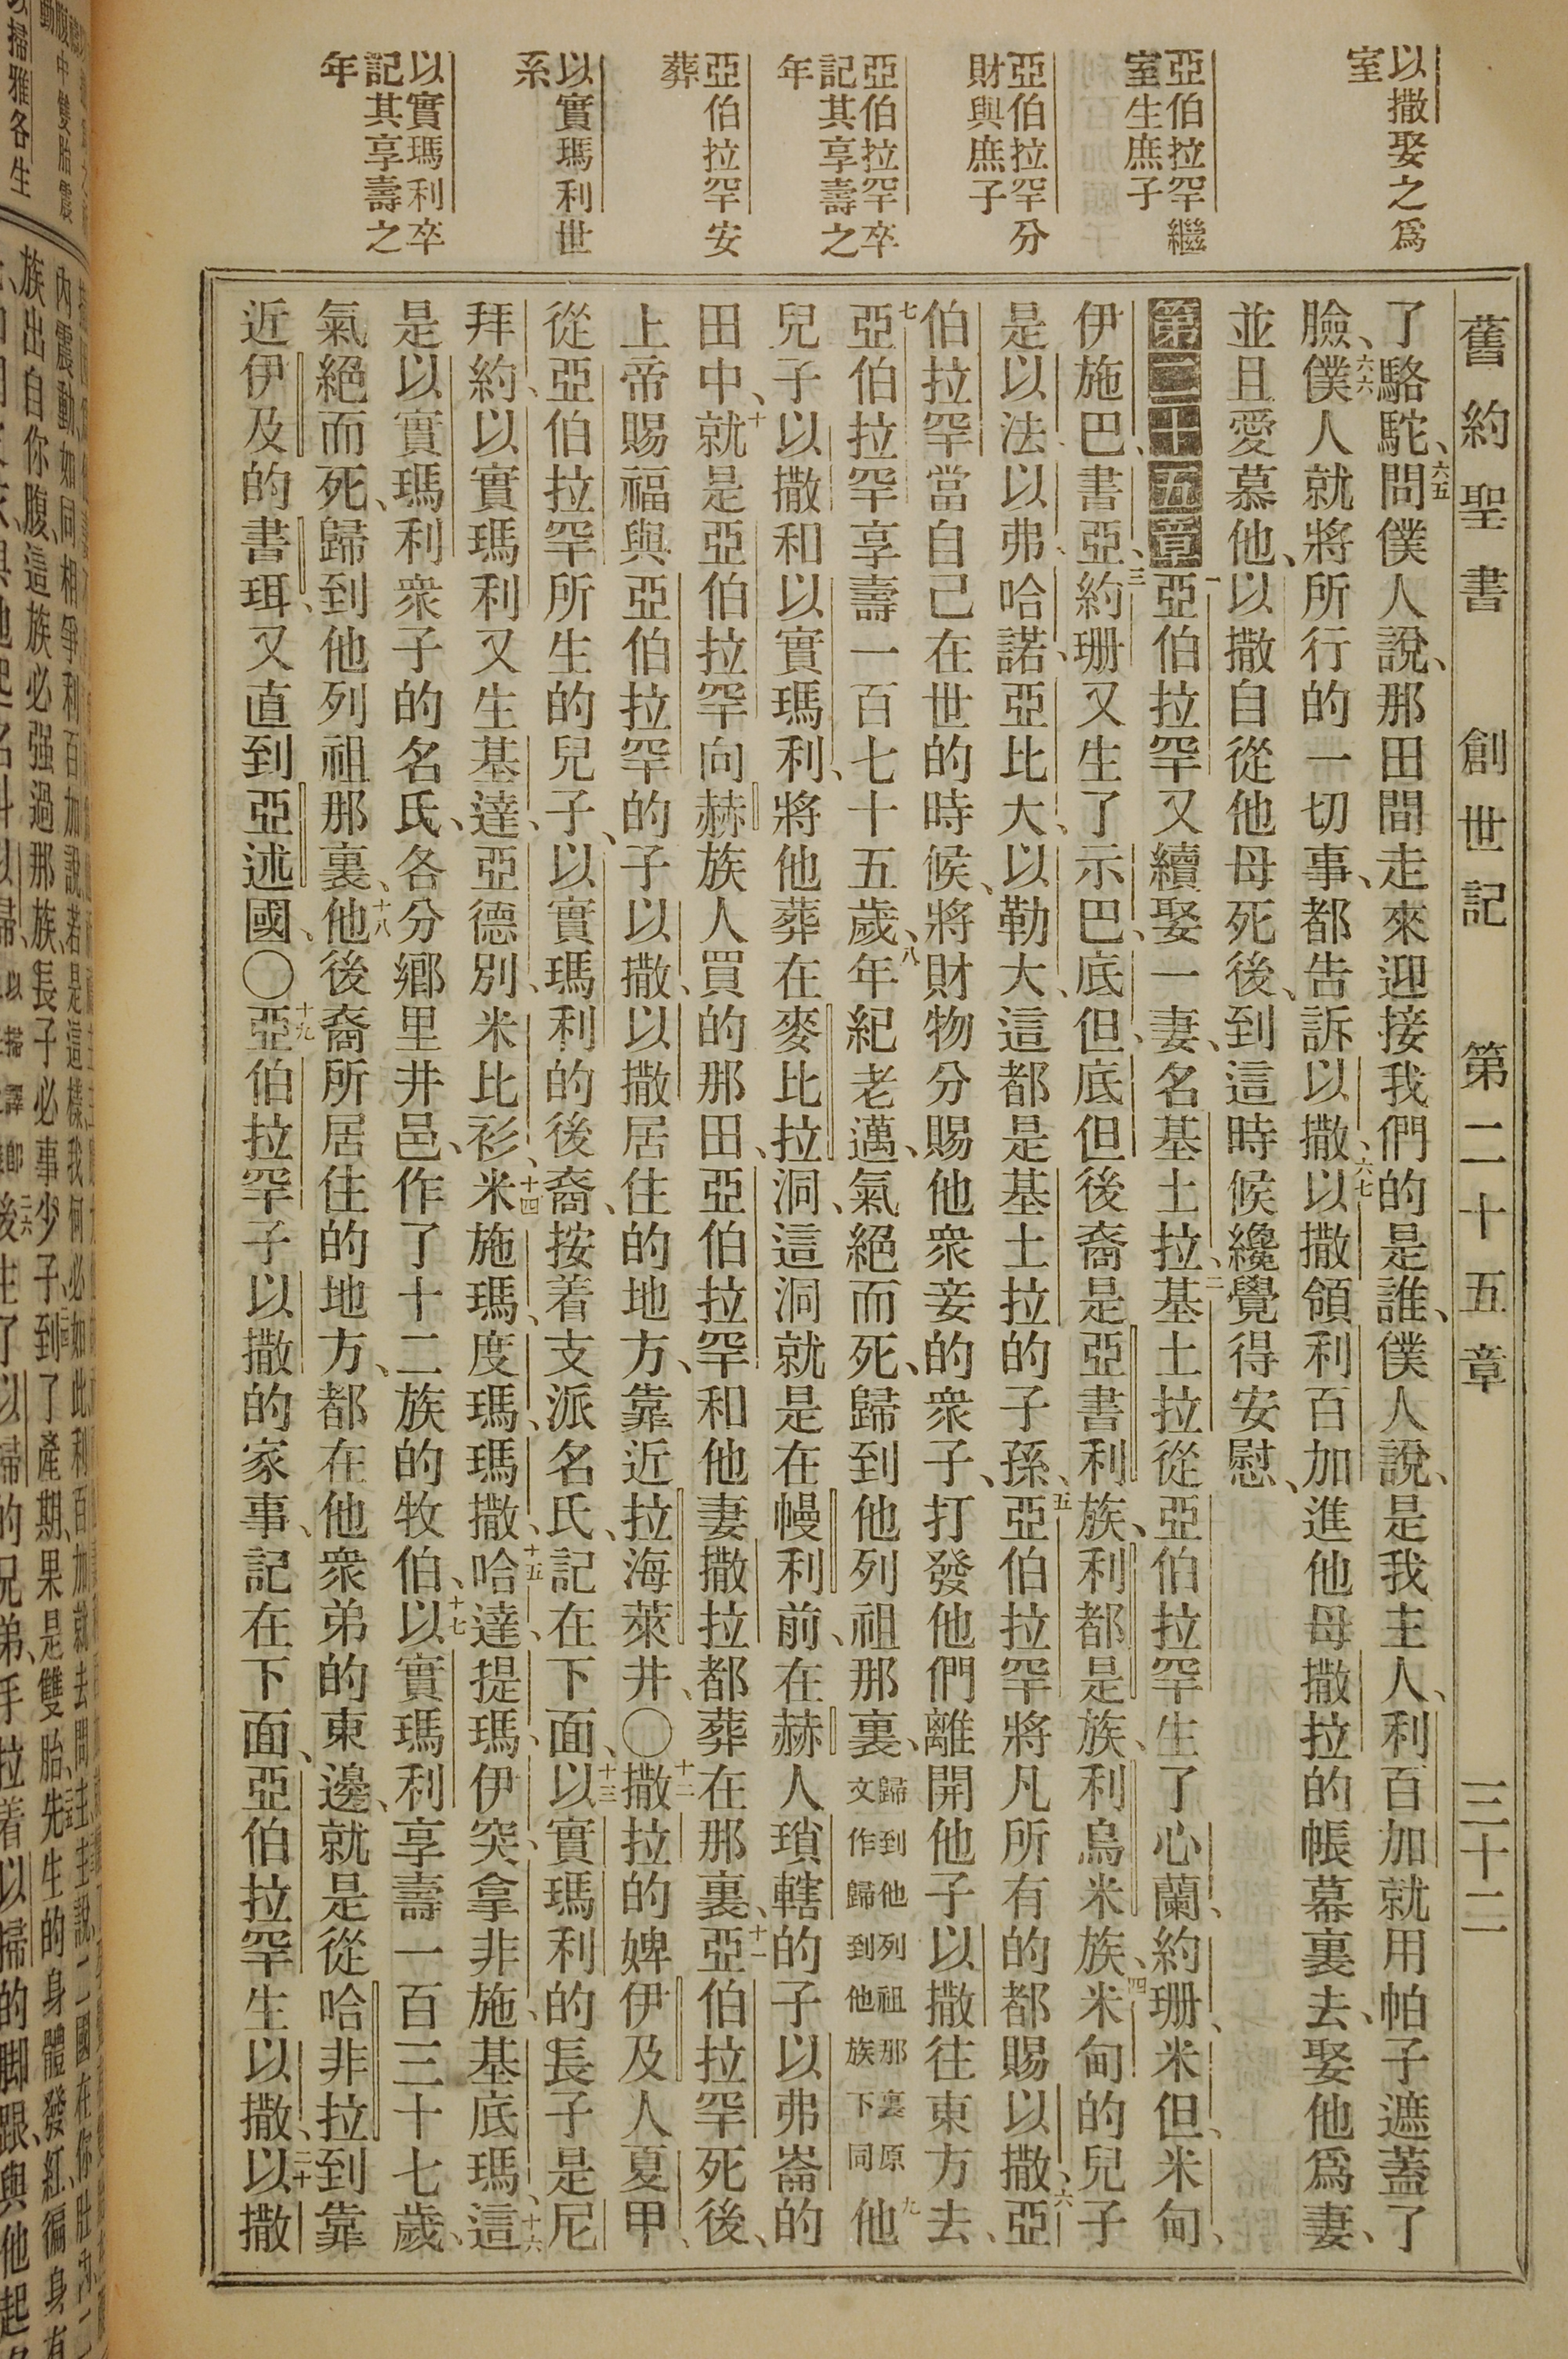 以撒娶之爲
室
亞伯拉罕繼
室生庶子
亞伯拉罕分
財與庶子
亞伯拉罕卒
記其享壽之
年
亞伯拉罕安
葬
以實瑪利世
系
以實瑪利卒
記其享壽之
年
舊約聖書 創世記 第二十五章 三十二
了駱駝、六五問僕人說、那田間走來迎接我們的是誰、僕人說、是我主人、利百加就用帕子遮蓋了
臉、六六僕人就將所行的一切事、都告訴以撒、六七以撒領利百加進他母撒拉的帳幕裏去、娶他爲妻、
並且愛慕他、以撒自從他母死後、到這時候纔覺得安慰、
第二十五章 一亞伯拉罕又續娶一妻、名基土拉、二基土拉從亞伯拉罕生了心蘭、約珊、米但、米甸、
伊施巴、書亞、三約珊又生了示巴、底但、底但後裔是亞書利族、利都是族、利烏米族、四米甸的兒子
是以法、以弗、哈諾、亞比大、以勒大、這都是基土拉的子孫、五亞伯拉罕將凡所有的都賜以撒、六亞
伯拉罕當自己在世的時候、將財物分賜他衆妾的衆子、打發他們離開他子以撒往東方去、
七亞伯拉罕享壽一百七十五歲、八年紀老邁、氣絕而死、歸到他列祖那裏、歸到他列祖那裏原文作歸到他族下同九他
兒子以撒和以實瑪利、將他葬在麥比拉洞、這洞就是在幔利前、在赫人瑣轄的子以弗崙的
田中、十就是亞伯拉罕向赫族人買的那田、亞伯拉罕和他妻撒拉都葬在那裏、十一亞伯拉罕死後、
上帝賜福與亞伯拉罕的子以撒、以撒居住的地方、靠近拉海萊井、〇十二撒拉的婢伊及人夏甲、
從亞伯拉罕所生的兒子、以實瑪利的後裔、按着支派名氏、記在下面、十三以實瑪利的長子是尼
拜約、以實瑪利又生基達、亞德別、米比衫、十四米施瑪、度瑪、瑪撒、十五哈達、提瑪、伊突、拿非施、基底瑪、十六這
是以實瑪利衆子的名氏、各分鄉里井邑、作了十二族的牧伯、十七以實瑪利享壽一百三十七歲、
氣絕而死、歸到他列祖那裏、十八他後裔所居住的地方、都在他衆弟的東邊、就是從哈非拉到靠
近伊及的書珥、又直到亞述國、〇十九亞伯拉罕子以撒的家事、記在下面、亞伯拉罕生以撒、二十以撒